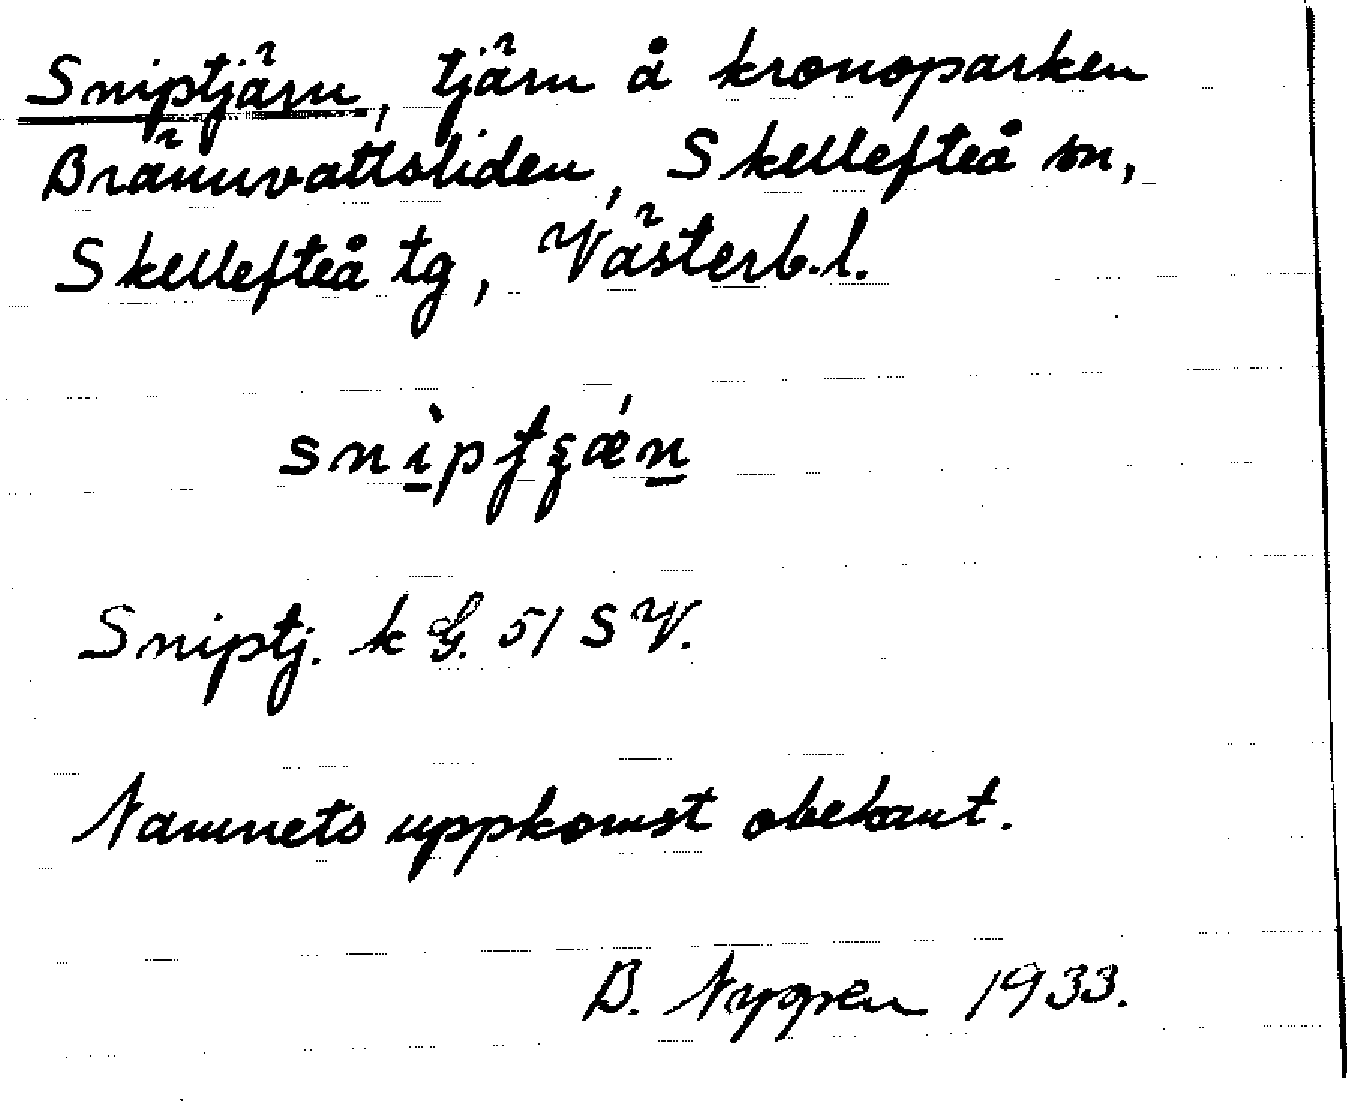 Sniptjärn, tjärn å kronoparken
Brännvattsliden, Skellefteå sn,
Skellefteå tg, Västerb.l.
Sniptj. k G. 51 SV.
Namnets uppkomst obekant.
B. Nygren 1933.